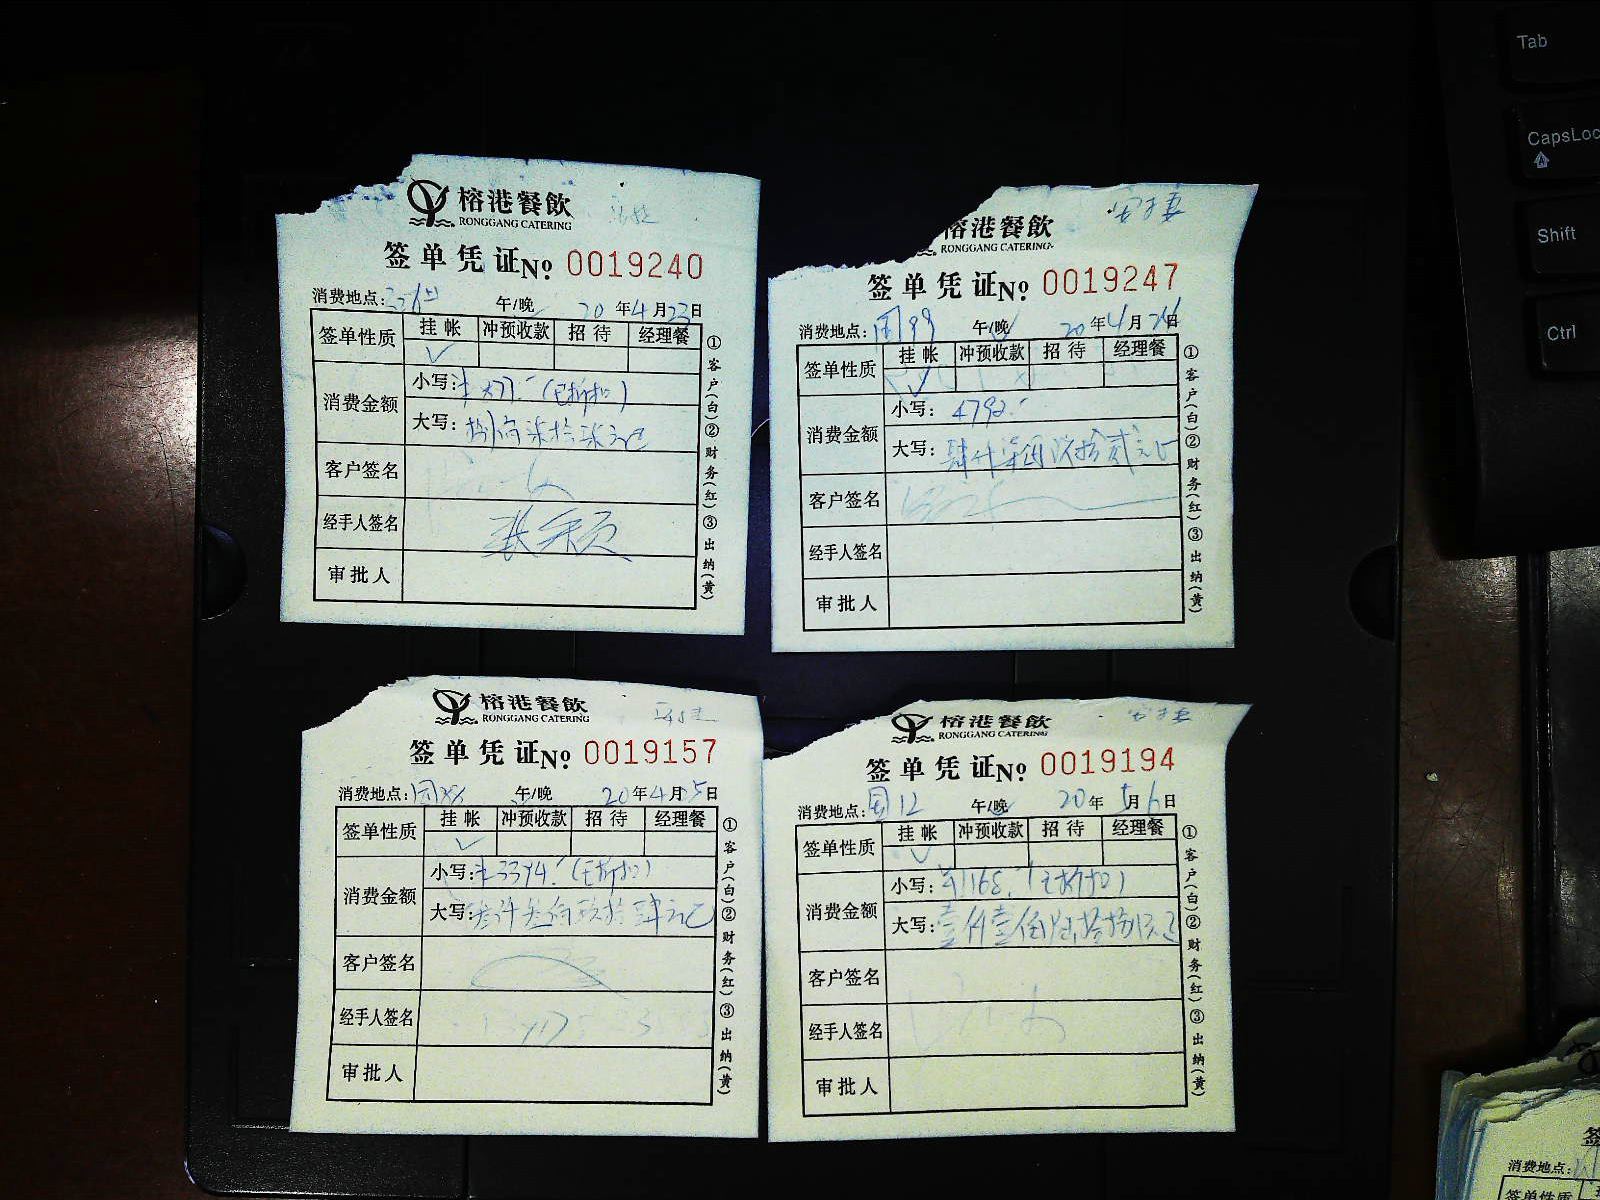 榕港餐飲
RONGGANG CATERING
签单凭证 № 0019240
消费地点: 午/晚 20年4月23日
签单性质 挂帐 冲预收款 招待 经理餐
✓
消费金额
小写: (已折扣)
大写:
客户签名
经手人签名 张
审批人
①客户(白)②财务(红)③出纳(黄)
榕港餐飲
RONGGANG CATERING
签单凭证 № 0019247
消费地点: 午/晚 20年4月日
签单性质 挂帐 冲预收款 招待 经理餐
✓
消费金额
小写: 4792.-
大写: 肆仟柒佰玖拾贰元
客户签名
经手人签名
审批人
①客户(白)②财务(红)③出纳(黄)
榕港餐飲
RONGGANG CATERING
签单凭证 № 0019157
消费地点: 午/晚 20年4月日
签单性质 挂帐 冲预收款 招待 经理餐
✓
消费金额
小写: 3394.- (已折扣)
大写: 叁仟叁佰玖拾肆元
客户签名
经手人签名
审批人
①客户(白)②财务(红)③出纳(黄)
榕港餐飲
RONGGANG CATERING
签单凭证 № 0019194
消费地点: 12 午/晚 20年5月6日
签单性质 挂帐 冲预收款 招待 经理餐
✓
消费金额
小写: 1168.- (已折扣)
大写: 壹仟壹佰陆拾捌元
客户签名
经手人签名
审批人
①客户(白)②财务(红)③出纳(黄)
Tab
CapsLoc
Shift
Ctrl
签
消费地点:
签单性质